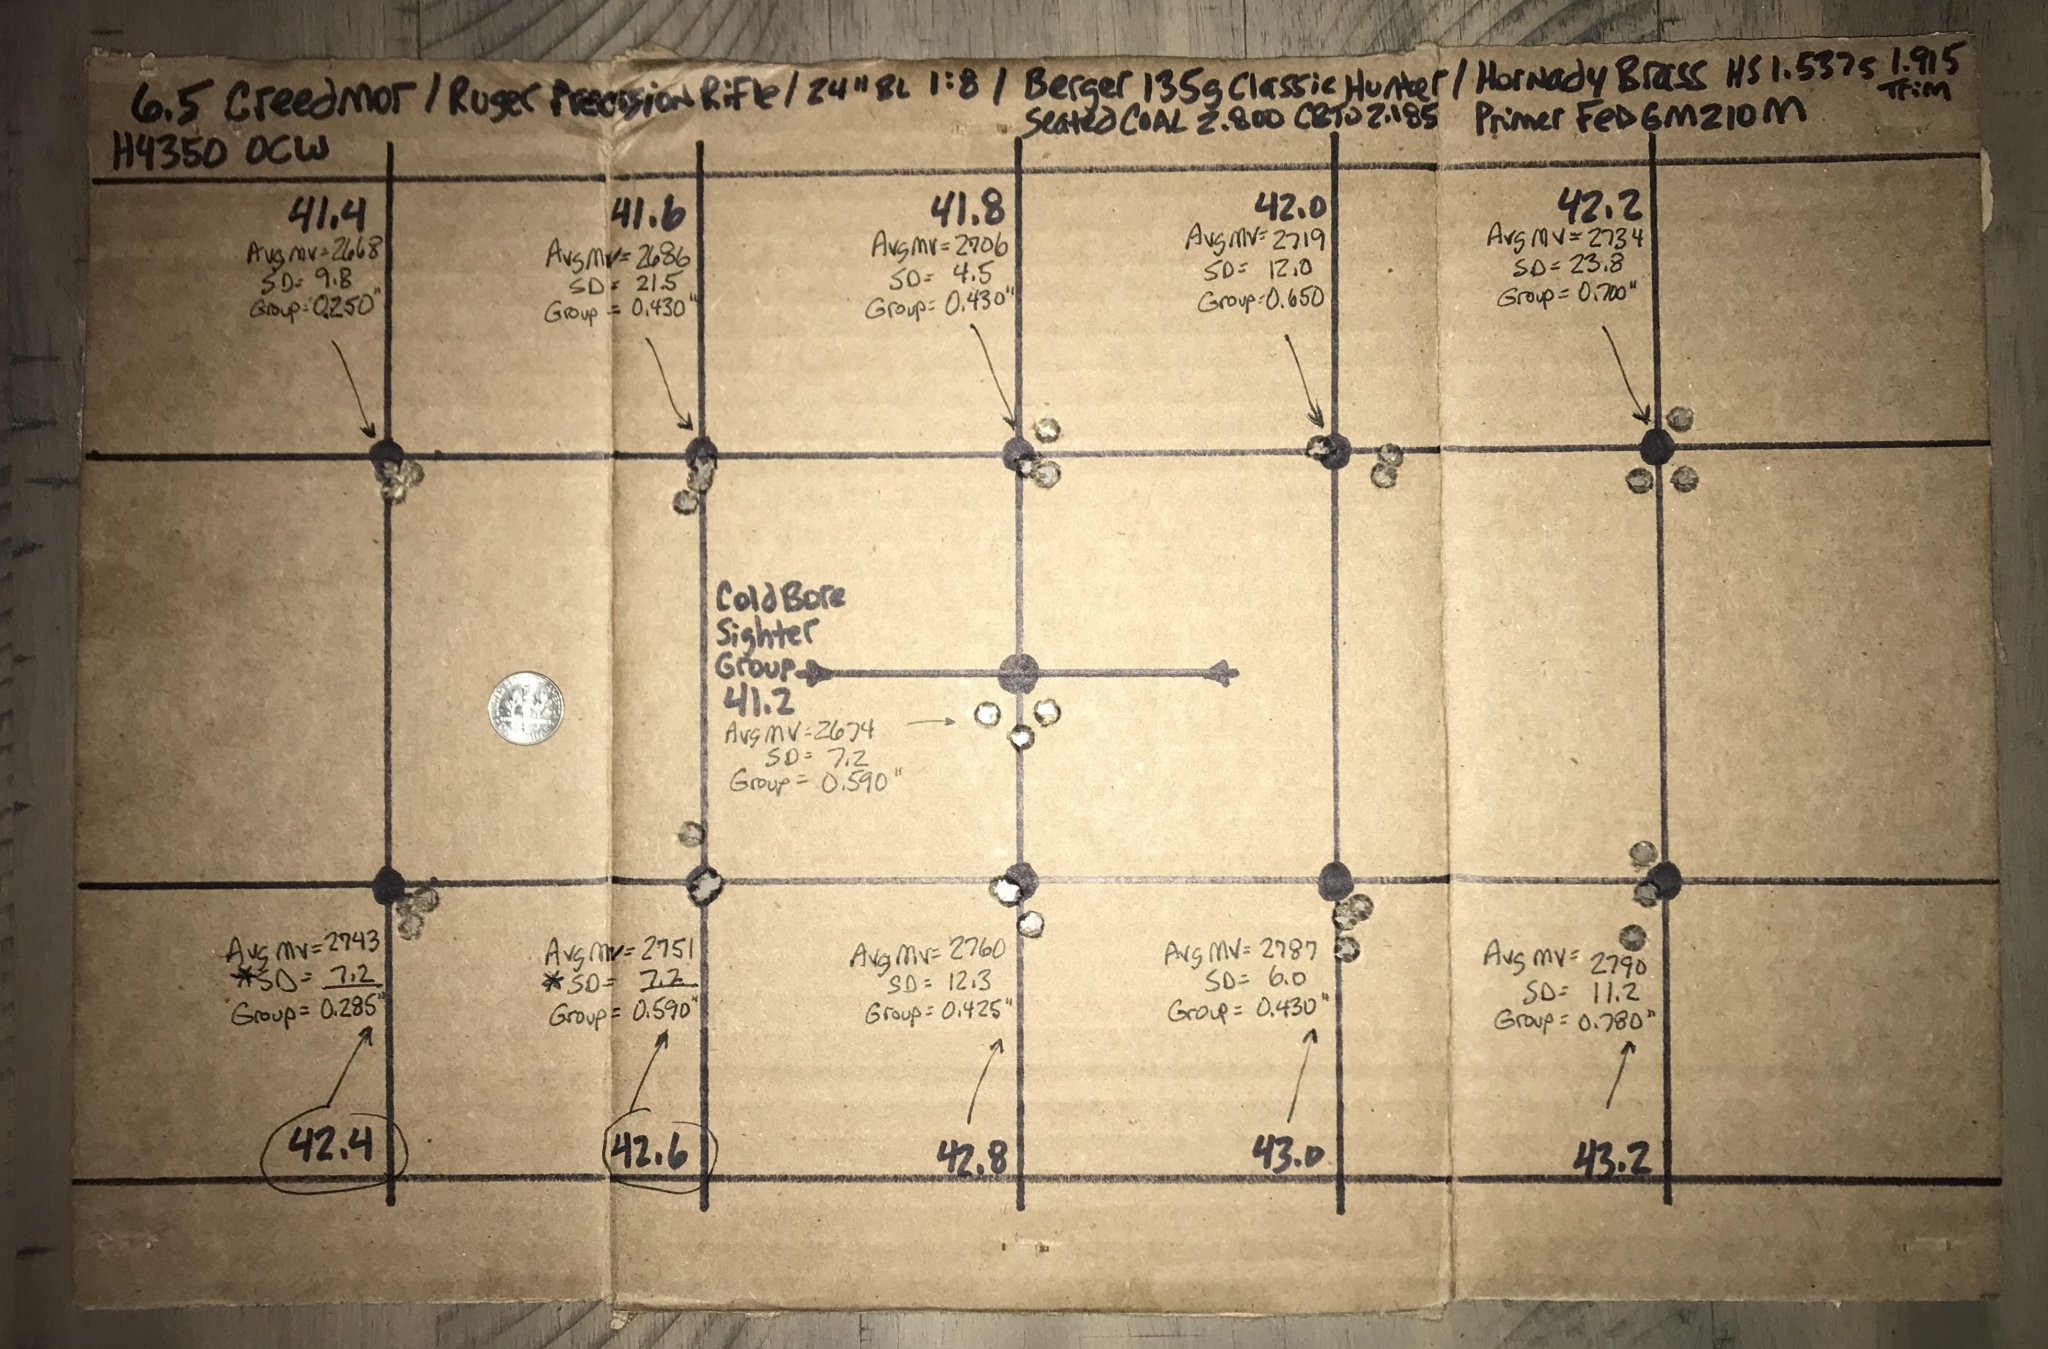 6.5 Creedmor / Ruger Precision Rifle / 24" BL 1:8 / Berger 135g Classic Hunter / Hornady Brass HS 1.5375 1.915 Trim
H4350 OCW
Seated COAL 2.800 CBTO 2.185 Primer FED GM210M
41.4
Avg MV=2668
SD= 9.8
Group=0.250"
41.6
Avg MV=2686
SD= 21.5
Group = 0.430"
41.8
Avg MV=2706
SD= 4.5
Group=0.430"
42.0
Avg MV=2719
SD= 12.0
Group=0.650
42.2
Avg MV=2734
SD= 23.8
Group=0.700"
Cold Bore
Sighter
Group
41.2
Avg MV=2674
SD= 7.2
Group= 0.590"
Avg MV=2743
*SD= 7.2
Group=0.285"
42.4
Avg MV=2751
*SD= 7.2
Group=0.590"
42.6
Avg MV= 2760
SD= 12.3
Group=0.425"
42.8
Avg MV= 2787
SD= 6.0
Group=0.430"
43.0
Avg MV= 2790
SD= 11.2
Group=0.780"
43.2